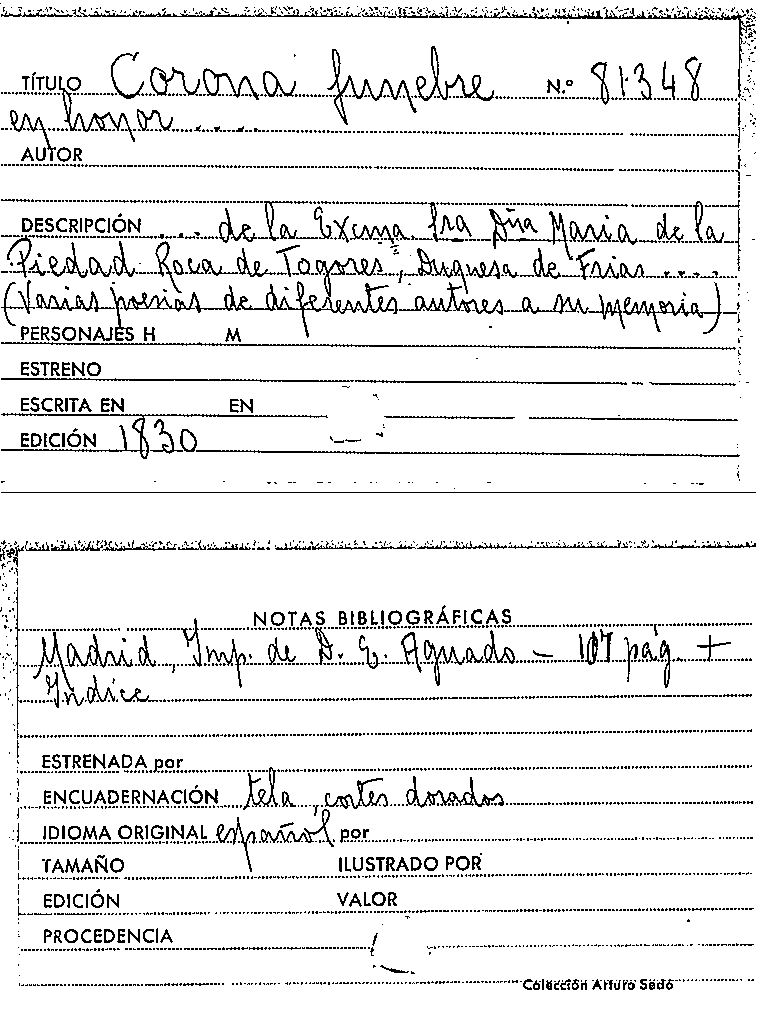 TÍTULO Corona fúnebre N.º 81348
en honor ....
AUTOR
DESCRIPCIÓN ... de la Excma. Sra Dña Maria de la
Piedad Roca de Togores, Duquesa de Frias ....
(Varias poesias de diferentes autores a su memoria)
PERSONAJES H M
ESTRENO
ESCRITA EN EN
EDICIÓN 1830
NOTAS BIBLIOGRÁFICAS
Madrid, Imp. de D. E. Aguado – 107 pág. +
Indice
ESTRENADA por
ENCUADERNACIÓN tela, cortes dorados
IDIOMA ORIGINAL español por
TAMAÑO ILUSTRADO POR
EDICIÓN VALOR
PROCEDENCIA
Colección Arturo Sedó